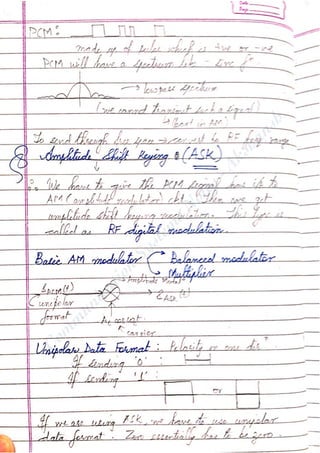 PCM :
made up of pulse which is +ve or -ve
PCM will have a spectrum like - sinc fn
lowpass spectrum
(we cannot transmit such a signal)
To send through free space → convert to RF freq range
Amplitude Shift Keying : (ASK)
∴ We have to give the PCM signal
AM (amplitude modulator) ckt. Then we get
amplitude shift keying modulation. This type is
called as RF digital modulation.
Basic AM modulator Balanced modulator
Multiplier
unipolar
format
carrier
Unipolar Data Format : Polarity in one dirn
If sending '0' :
If sending '1' : or
If we are using ASK, we have to use unipolar
data format. Zero essentially has to be zero.